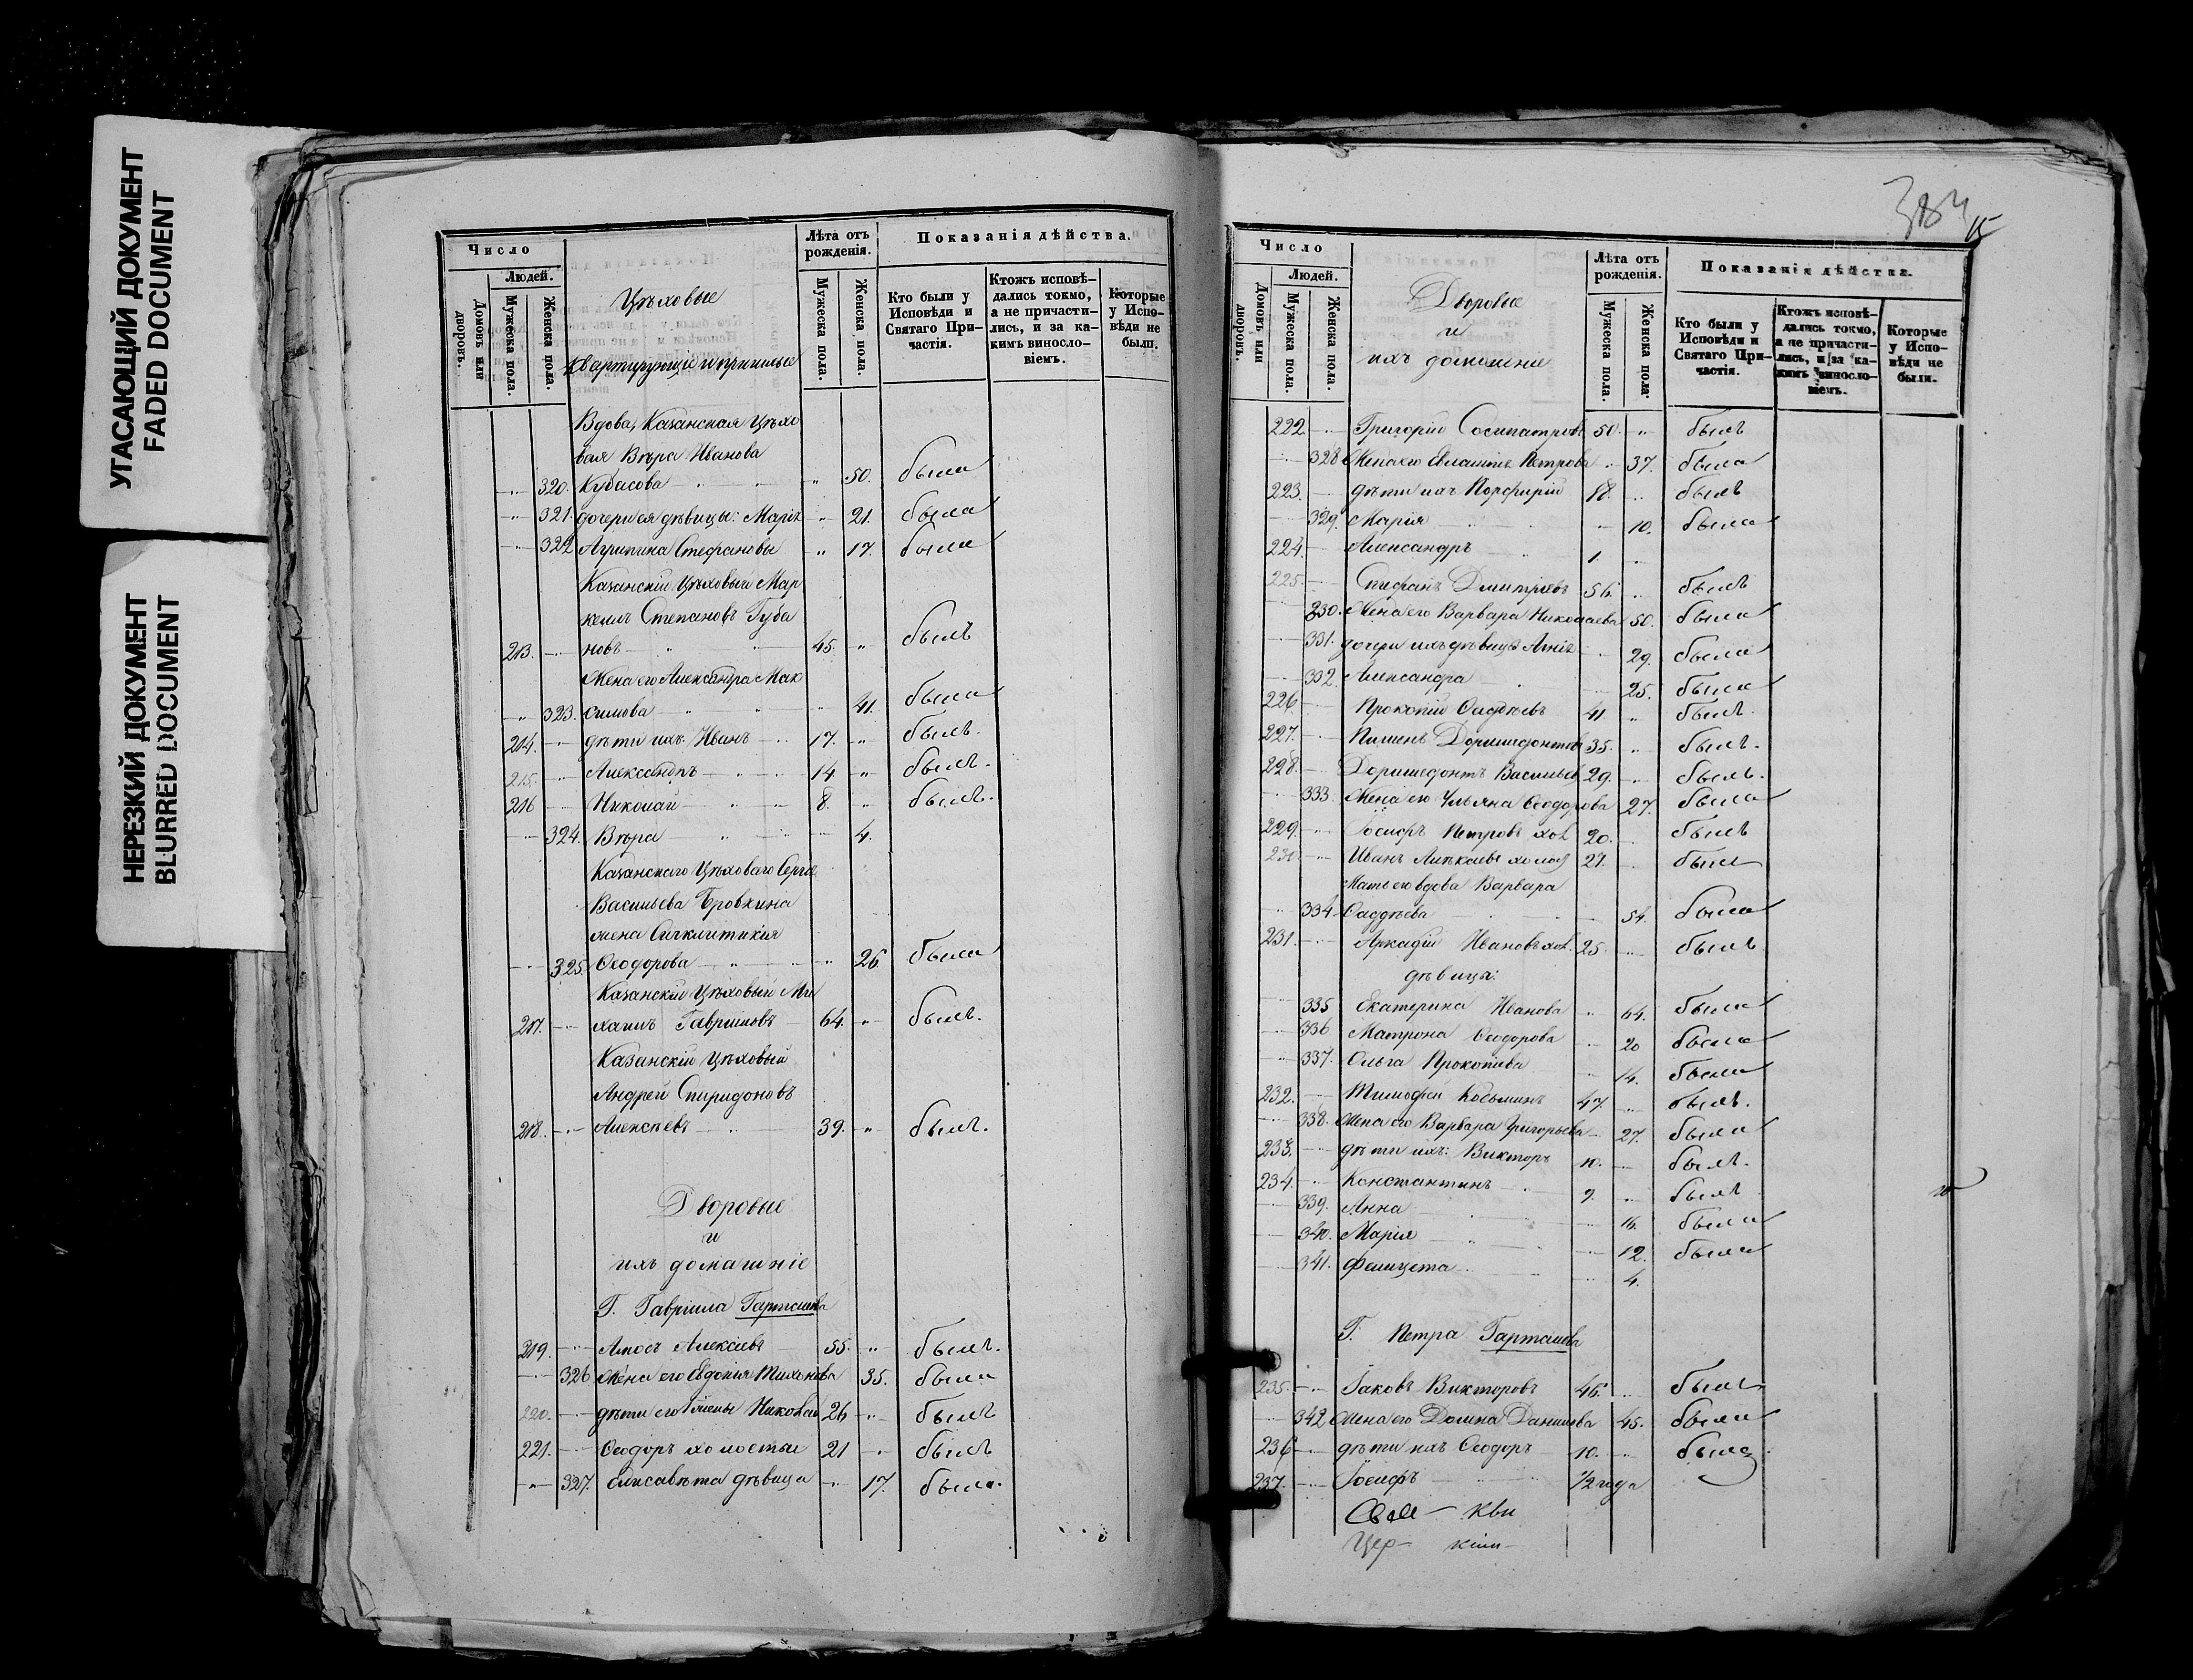 УГАСАЮЩИЙ ДОКУМЕНТ
FADED DOCUMENT
НЕРЕЗКИЙ ДОКУМЕНТ
BLURRED DOCUMENT
Число
Людей.
Домовъ или дворовъ.
Мужеска пола.
Женска пола.
Цѣховые
Квартирующіе и пришлые
Лѣта отъ рожденія.
Мужеска пола.
Женска пола.
Показанія дѣйства.
Кто были у Исповѣди и Святаго Причастія.
Ктожъ исповѣдались токмо, а не причастились, и за какимъ винословіемъ.
Которые у Исповѣди не были.
Вдова, Казанская Цѣхо
вая Вѣра Иванова
320. Кубасова 50. была
321. дочери ея дѣвицы: Марія 21. была
322 Агрипина Стефановы 17. была
Казанскій Цѣховый Мар
келъ Степановъ Губа
213. новъ 45. былъ
Жена его Александра Мак
323. симова 41. была
214. дѣти ихъ: Иванъ 17. былъ.
215. Александръ 14 былъ.
216 Николай 8. былъ.
324. Вѣра 4.
Казанскаго Цѣховаго Сергѣя
Васильева Бровкина
жена Синклитикія
325. Ѳеодорова 26. была
Казанскій Цѣховый Ми
217. хаилъ Гавриловъ 64. былъ.
Казанскій Цѣховый
Андрей Спиридоновъ
218. Алексѣевъ 39. былъ.
Дворовые
и
ихъ домашніе
Г. Гавріила Гарталова
219. Амосъ Алексіевъ 55. былъ.
326 жена его Евдокія Тихонова 35. была
220. дѣти его Николай 26 былъ
221. Ѳеодоръ холостые 21 былъ
327. Елисавѣта дѣвица 17. была.
383
Число
Людей.
Домовъ или дворовъ.
Мужеска пола.
Женска пола.
Дворовые
и
ихъ домашніе
Лѣта отъ рожденія.
Мужеска пола.
Женска пола
Показанія дѣйства.
Кто были у Исповѣди и Святаго Причастія.
Ктожъ исповѣдались токмо, а не причастились, и за какимъ винословіемъ.
Которые у Исповѣди не были.
222 Григорій Сосипатровъ 50. былъ
328 Жена его Петрова 37. была
223. дѣти ихъ Порфирій 18. былъ
329. Марія 10. была
224. Александръ 1.
225. Стефанъ Дмитріевъ 56. былъ
230. Жена его Варвара Николаева 50. была
331. дочери ихъ дѣвицы 29. была
332. Александра 25. была
226 Прокопій Ѳаддѣевъ 41 былъ.
227. Пименъ Доримедонтовъ 35. былъ.
228. Доримедонтъ Васильевъ 29. былъ.
333. Жена его Ульяна Ѳеодорова 27. была
229. Іосифъ Петровъ хол. 20. былъ
230. Иванъ Алексіевъ холос 27. былъ
Мать его вдова Варвара
334. Ѳаддѣева 54. была
231. Аркадій Ивановъ хол. 25. былъ.
дѣвицы:
335 Екатерина Иванова 64. была
336 Матрона Ѳеодорова 20 была
337. Ольга Прокопіева 14. была
232. Тимофей Козьминъ 47. былъ.
338. Жена его Варвара Григорьева 27. была
233. дѣти ихъ: Викторъ 10. былъ.
234. Константинъ 9. былъ
339. Анна 16. была
340. Марія 12. была
341. Фелицата 4.
Г. Петра Гарталова
235. Іаковъ Викторовъ 46. былъ
342 Жена его Домна Данилова 45. была
236 дѣти ихъ Ѳеодоръ 10. былъ
237. Іосифъ 1/2 года
кви
Цер